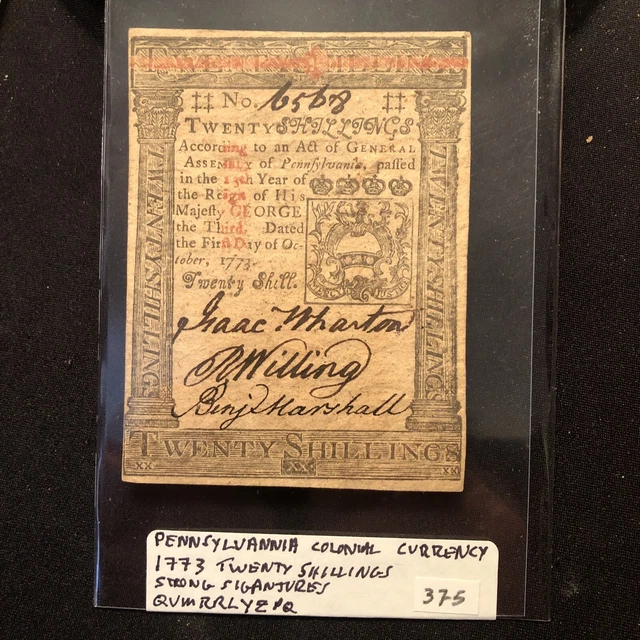 TWENTY SHILLINGS
No. 6568
TWENTY SHILLINGS
According to an Act of GENERAL
ASSEMBLY of Pennsylvania, passed
in the 13th Year of
the Reign of His
Majesty GEORGE
the Third. Dated
the First Day of Oc-
tober, 1773.
Twenty Shill.
TWENTY SHILLINGS
TWENTY SHILLINGS
Isaac Wharton
R Willing
Benj Marshall
TWENTY SHILLINGS
XX XX XX
PENNSYLVANNIA COLONIAL CURRENCY
1773 TWENTY SHILLINGS
STRONG SIGANTURES
QVMRRLYZPQ
375